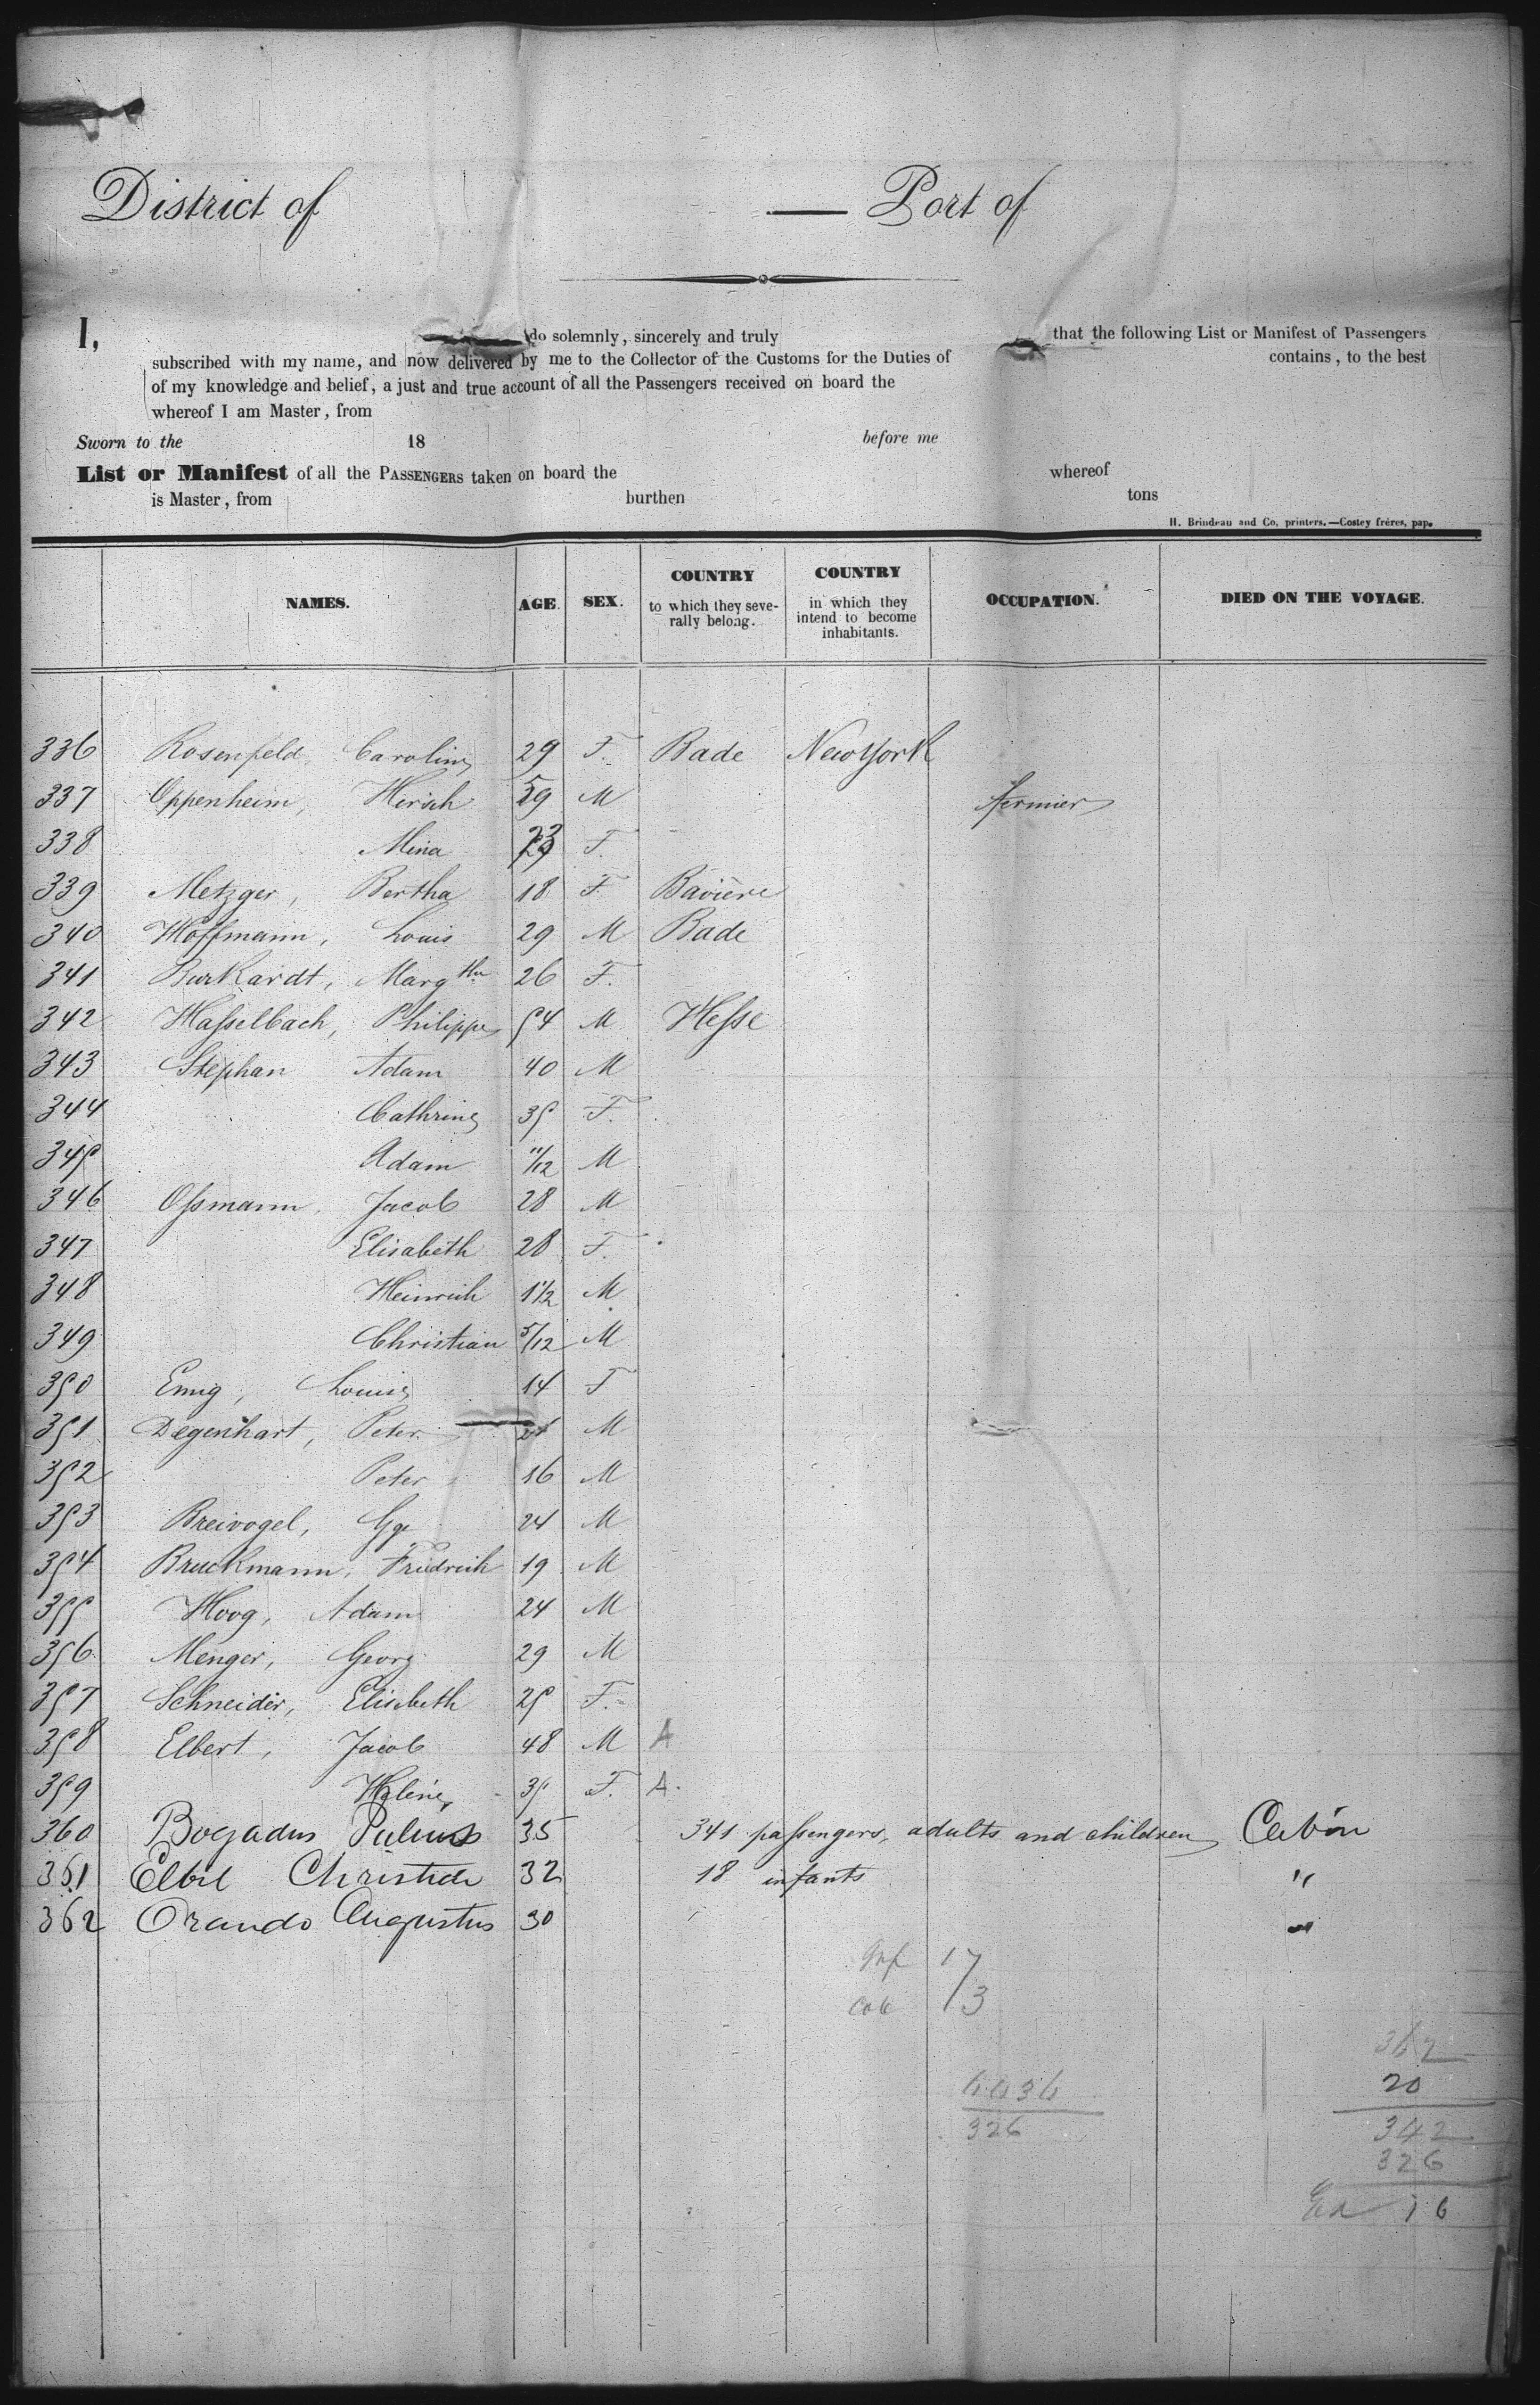 District of — Port of
I, do solemnly, sincerely and truly that the following List or Manifest of Passengers
subscribed with my name, and now delivered by me to the Collector of the Customs for the Duties of contains, to the best
of my knowledge and belief, a just and true account of all the Passengers received on board the
whereof I am Master, from
Sworn to the 18 before me
List or Manifest of all the PASSENGERS taken on board the whereof
is Master, from burthen tons
H. Brindeau and Co, printers.—Costey fréres, pap.
NAMES. AGE. SEX. COUNTRY to which they seve- COUNTRY in which they OCCUPATION. DIED ON THE VOYAGE.
rally belong. intend to become
inhabitants.
336 Rosenfeld, Caroline 29 F. Bade NewYork
337 Oppenheim, Hirsch 59 M fermier
338 Mina 23 F.
339 Metzger, Bertha 18 F. Bavière
340 Hoffmann, Louis 29 M Bade
341 Burkardt, Margtha 26 F.
342 Hasselbach, Philippe 54 M Hesse
343 Stephan Adam 40 M
344 Cathrine 35 F.
345 Adam 11/12 M
346 Ossmann, Jacob 28 M
347 Elisabeth 28 F.
348 Heinrich 1 1/2 M
349 Christian 5/12 M
350 Emig, Louise 14 F
351 Degenhart, Peter 24 M
352 Peter 16 M
353 Breivogel, Gg. 24 M
354 Bruckmann, Friedrich 19 M
355 Hoog, Adam 24 M
356 Menger, Georg 29 M
357 Schneider, Elisabeth 25 F.
358 Elbert, Jacob 48 M A
359 Heléne 35 F. A.
360 Bogadus Julius 35 341 passengers, adults and children
361 Elbil 32 18 infants "
362 Orando Augustus 30 "
Inf 17
Cab 3
362
20
326 342
326
16